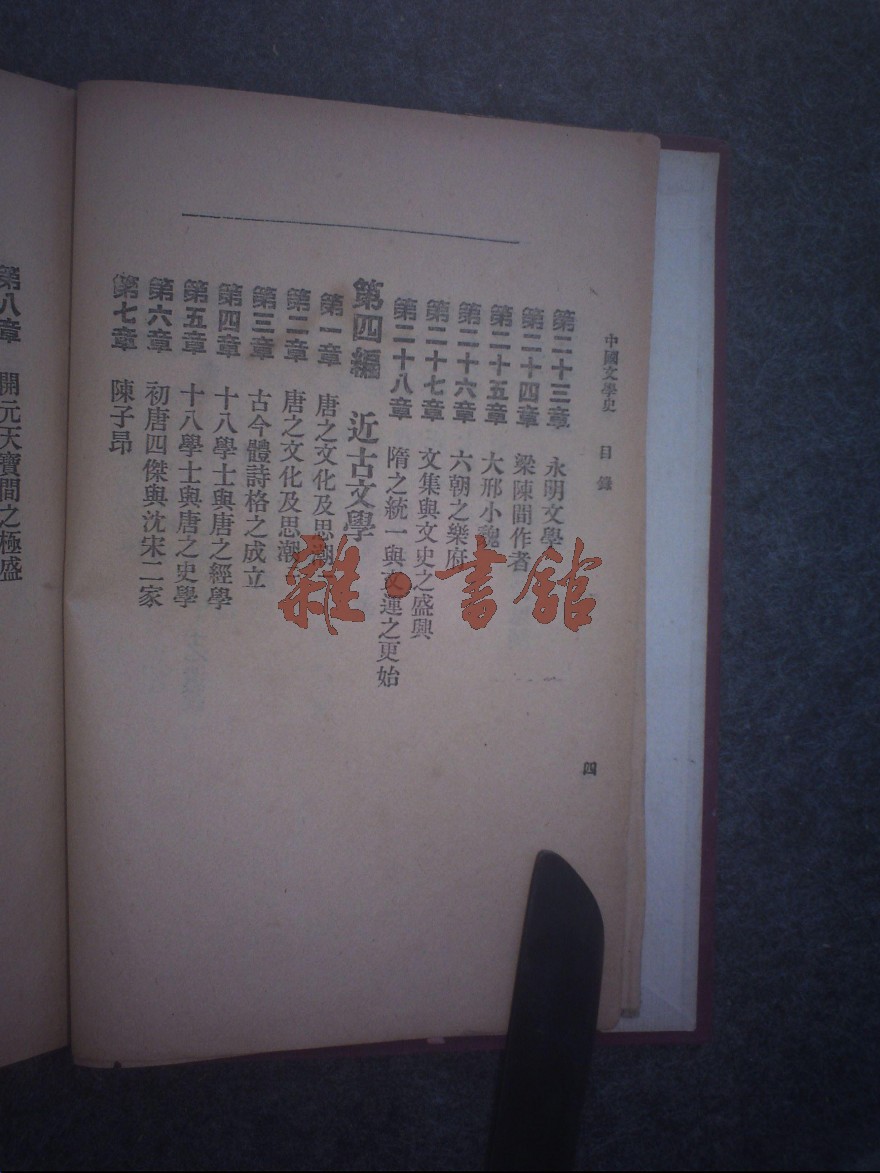 中國文學史 目錄
四
第二十三章 永明文學
第二十四章 梁陳間作者
第二十五章 大邢小魏
第二十六章 六朝之樂府
第二十七章 文集與文史之盛興
第二十八章 隋之統一與文運之更始
第四編 近古文學
第一章 唐之文化及思潮
第二章 唐之文化及思潮
第三章 古今體詩格之成立
第四章 十八學士與唐之經學
第五章 十八學士與唐之史學
第六章 初唐四傑與沈宋二家
第七章 陳子昂
第八章 開元天寶間之極盛
雜·書館